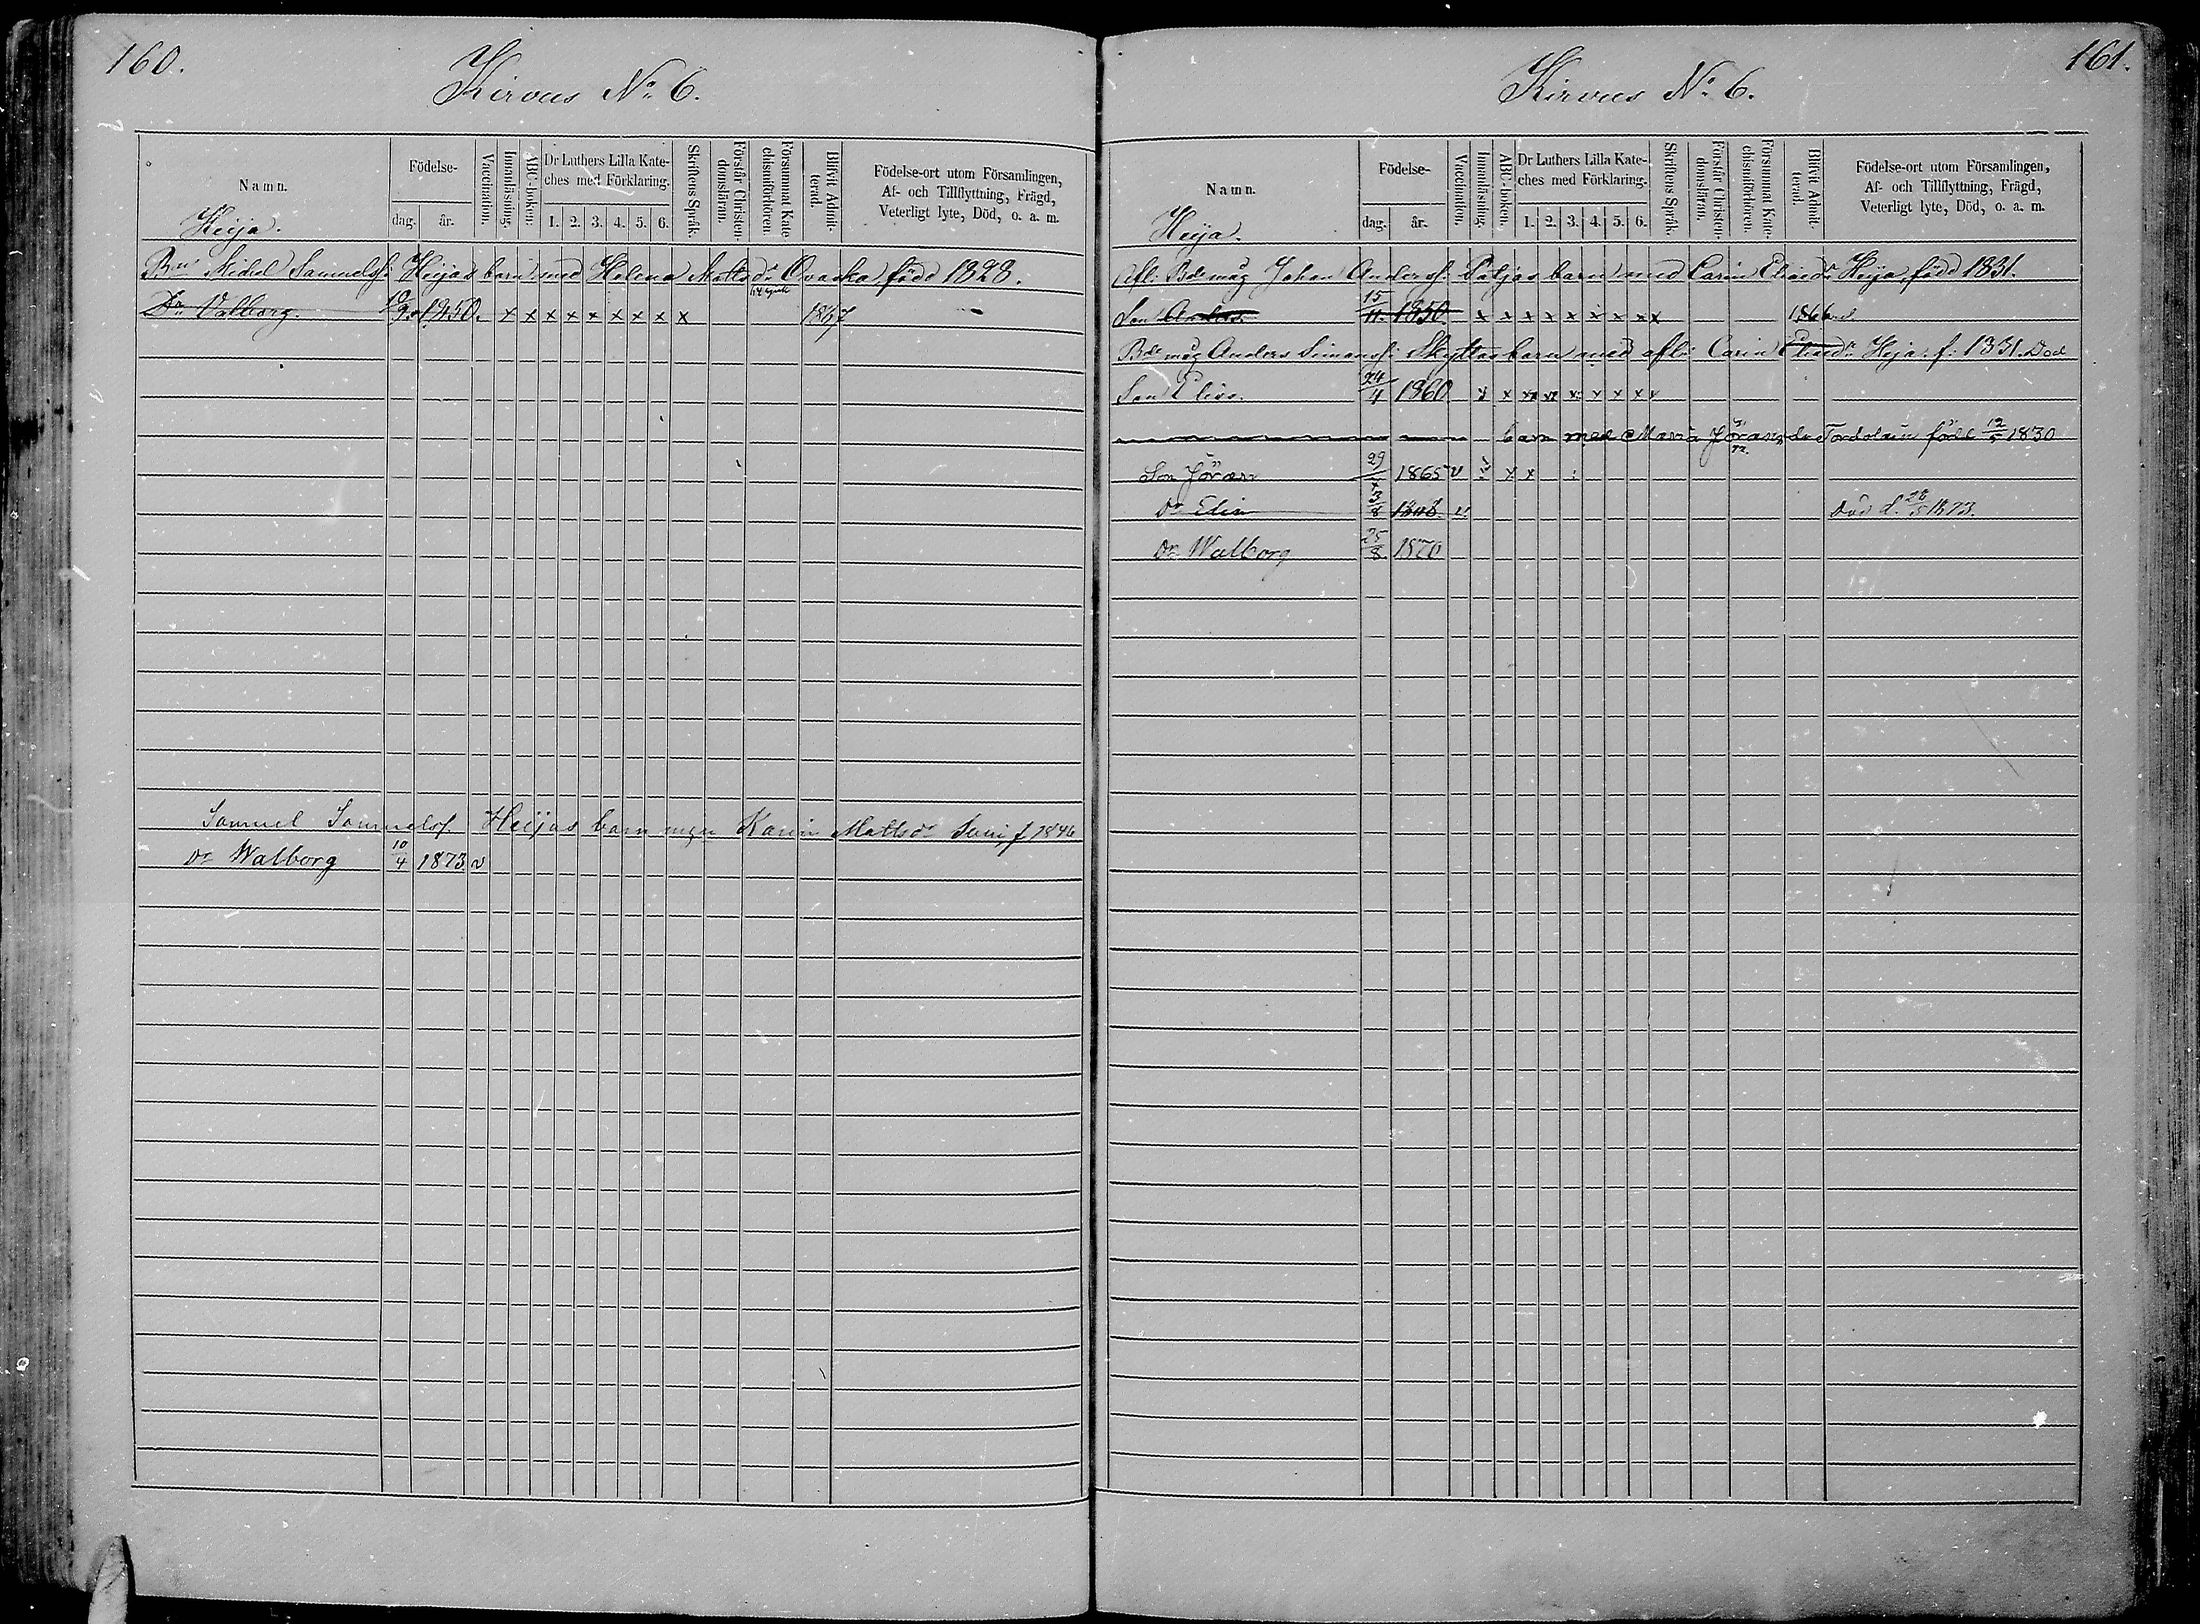 160.
Kirvus No 6.
Namn.
Födelse-
dag. år.
Vaccination.
Innanläsning.
ABC-boken.
Dr Luthers Lilla Kate-
ches med Förklaring.
1. 2. 3. 4. 5. 6.
Skriftens Språk.
Förstår Christen-
domsläran.
Försummat Kate-
chismiförhören.
Blifvit Admit-
terad.
Födelse-ort utom Församlingen,
Af- och Tillflyttning, Frägd,
Veterligt lyte, Död, o. a. m.
Heija.
Bn Michel Samuelss: Heijas barn med Helena Mattsdr Ovaska född 1828.
Dr Valborg. 10/9 1850. x x x x x x x x x 1867
Samuel Samuelss. Heijas barn med Karin Mattsdr Suni, f 1846
Dr Walborg 10/4 1873 v
161.
Kirvus No 6.
Namn.
Födelse-
dag. år.
Vaccination.
Innanläsning.
ABC-boken.
Dr Luthers Lilla Kate-
ches med Förklaring.
1. 2. 3. 4. 5. 6.
Skriftens Språk.
Förstår Christen-
domsläran.
Försummat Kate-
chismiförhören.
Blifvit Admit-
terad.
Födelse-ort utom Församlingen,
Af- och Tillflyttning, Frägd,
Veterligt lyte, Död, o. a. m.
Heija.
Afl. Bdemåg Johan Anderss: Patjas barn med Carin Eliaedr Heija, född 1831.
Son Anders. 15/11. 1850. x x x x x x x x x 1866
Bdemåg Anders Simonss: Skyttas barn med afl: Carin Eliaedr Heija: f: 1831. Död
Son Elias. 24/4 1860 x x x x x x x x
barn med Maria Jöransdr Tordolain född 12/5 1830
Son Jöran 29 1865 v x x
Dr Elin 3/8 1868 v. Död d. 28/5 1873.
Dr Walborg 25/8 1870